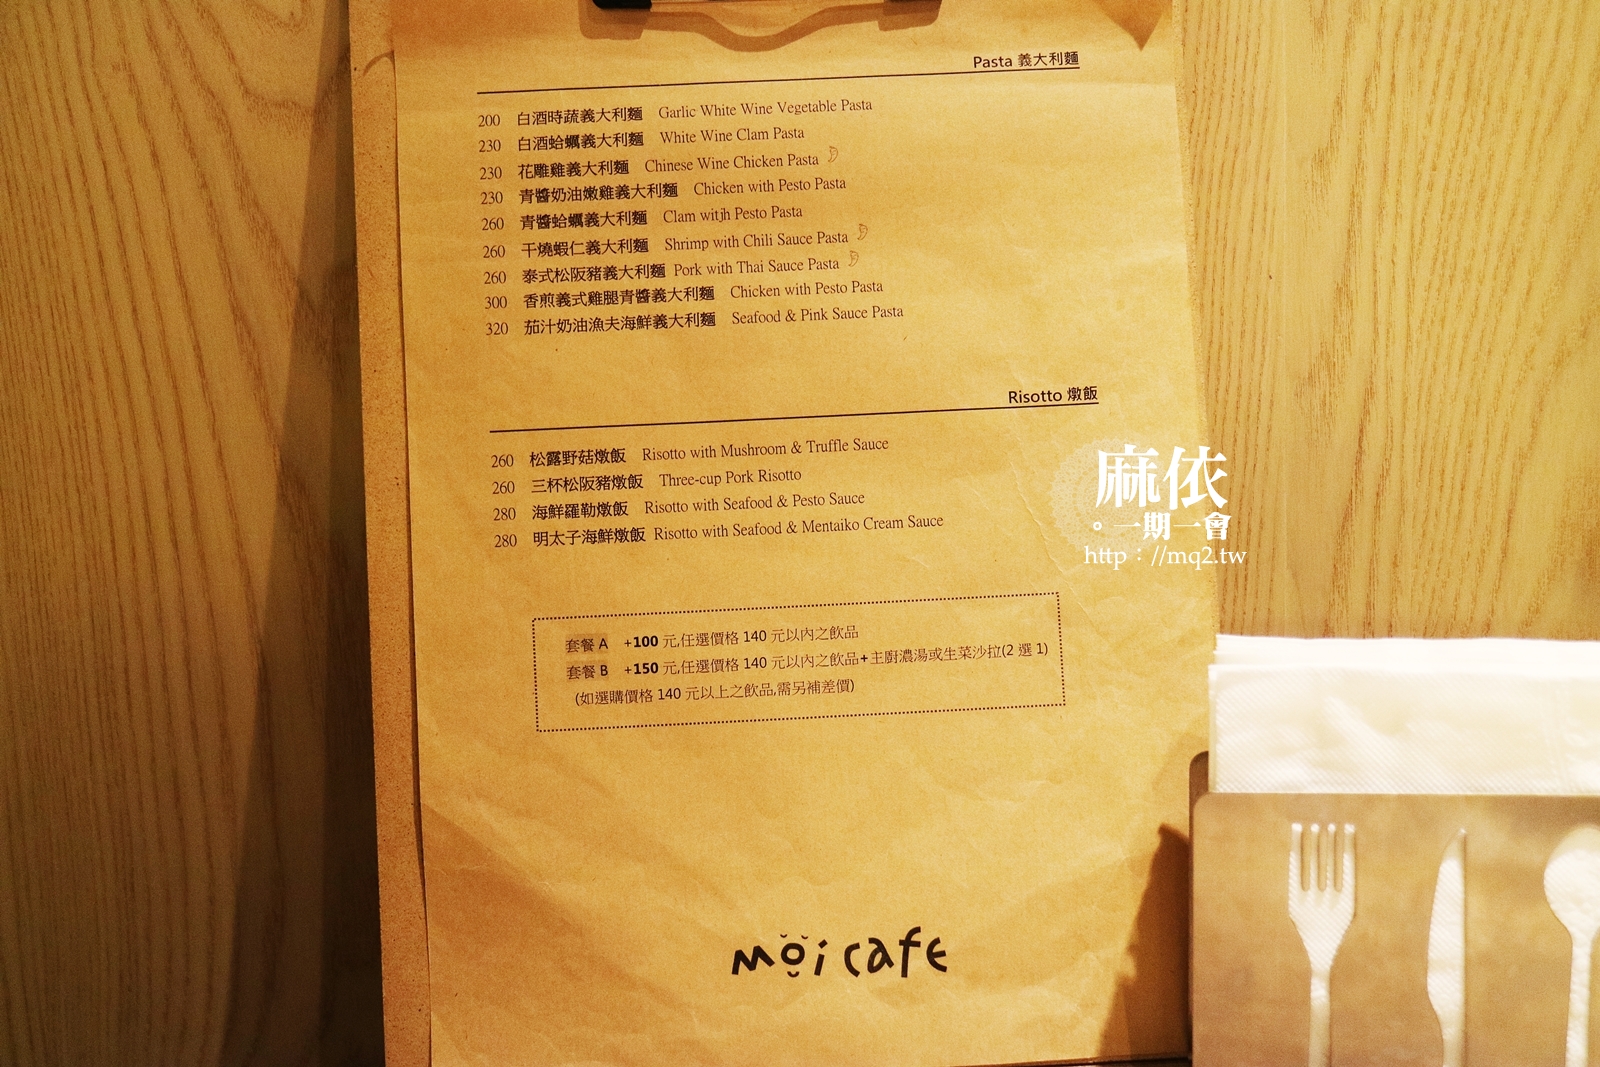 Pasta 義大利麵
200 白酒時蔬義大利麵 Garlic White Wine Vegetable Pasta
230 白酒蛤蠣義大利麵 White Wine Clam Pasta
230 花雕雞義大利麵 Chinese Wine Chicken Pasta
230 青醬奶油嫩雞義大利麵 Chicken with Pesto Pasta
260 青醬蛤蠣義大利麵 Clam witjh Pesto Pasta
260 干燒蝦仁義大利麵 Shrimp with Chili Sauce Pasta
260 泰式松阪豬義大利麵 Pork with Thai Sauce Pasta
300 香煎義式雞腿青醬義大利麵 Chicken with Pesto Pasta
320 茄汁奶油漁夫海鮮義大利麵 Seafood & Pink Sauce Pasta
Risotto 燉飯
260 松露野菇燉飯 Risotto with Mushroom & Truffle Sauce
260 三杯松阪豬燉飯 Three-cup Pork Risotto
280 海鮮羅勒燉飯 Risotto with Seafood & Pesto Sauce
280 明太子海鮮燉飯 Risotto with Seafood & Mentaiko Cream Sauce
麻依
。一期一會
http：//mq2.tw
套餐 A +100 元,任選價格 140 元以內之飲品
套餐 B +150 元,任選價格 140 元以內之飲品+主廚濃湯或生菜沙拉(2 選 1)
(如選購價格 140 元以上之飲品,需另補差價)
moi cafe